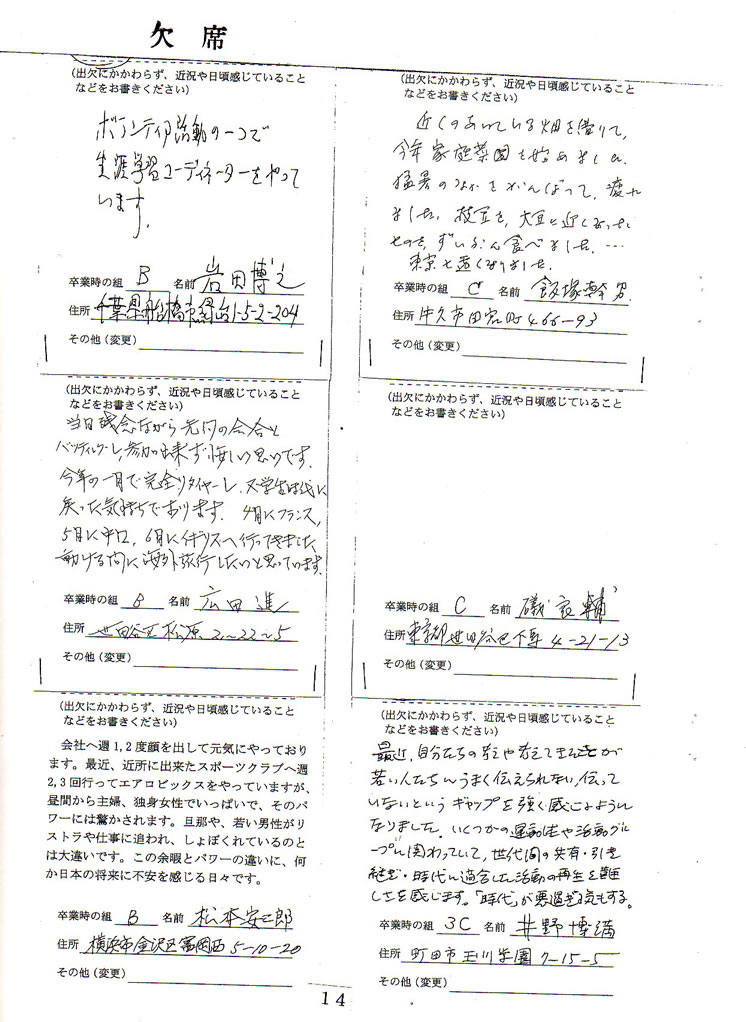 欠席
(出欠にかかわらず、近況や日頃感じていること
などをお書きください)
ボランティア活動の一つで
生涯学習コーディネーターをやって
います。
卒業時の組 B 名前 岩田博之
住所 千葉県船橋市緑台1-5-2-204
その他(変更)
(出欠にかかわらず、近況や日頃感じていること
などをお書きください)
近くのあいている畑を借りて、
今年家庭菜園を始めました。
猛暑のなかをがんばって、疲れ
ました。枝豆を、大豆に近くなった
ものを、ずいぶん食べました。…
東京も遠くなりました。
卒業時の組 C 名前 飯塚幹男
住所 牛久市田宮町466-93
その他(変更)
(出欠にかかわらず、近況や日頃感じていること
などをお書きください)
当日残念ながら先約の会合と
バッティングし、参加出来ず悔しい思いです。
今年の一月で完全リタイヤーし、又学生時代に
戻った気持ちであります。4月にフランス,
5月に中口, 6月にイギリスへ行ってきました
動ける内に海外旅行したいと思っています。
卒業時の組 B 名前 広田進
住所 世田谷区松原2-22-5
その他(変更)
(出欠にかかわらず、近況や日頃感じていること
などをお書きください)
卒業時の組 C 名前 磯 輔
住所 東京都世田谷区下馬4-21-13
その他(変更)
(出欠にかかわらず、近況や日頃感じていること
などをお書きください)
会社へ週1,2度顔を出して元気にやっており
ます。最近、近所に出来たスポーツクラブへ週
2,3回行ってエアロビックスをやっていますが、
昼間から主婦、独身女性でいっぱいで、そのパ
ワーには驚かされます。旦那や、若い男性がリ
ストラや仕事に追われ、しょぼくれているのと
は大違いです。この余暇とパワーの違いに、何
か日本の将来に不安を感じる日々です。
卒業時の組 B 名前 松本安二郎
住所 横浜市金沢区富岡西5-10-20
その他(変更)
(出欠にかかわらず、近況や日頃感じていること
などをお書きください)
最近、自分たちの考えや考えてきたことが
若い人たちへうまく伝えられない,伝って
いないというギャップを強く感じるように
なりました。いくつかの運動体や活動グル
ープに関わっていて、世代間の共有・引き
継ぎ・時代に適合した活動の再生を難
しさを感じます。「時代」が悪過ぎる気もする。
卒業時の組 3C 名前 井野博満
住所 町田市玉川学園7-15-5
その他(変更)
14